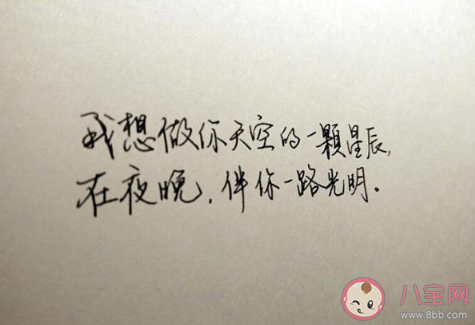 我想做你天空的一颗星辰,
在夜晚,伴你一路光明.
八宝网
www.8bb.com